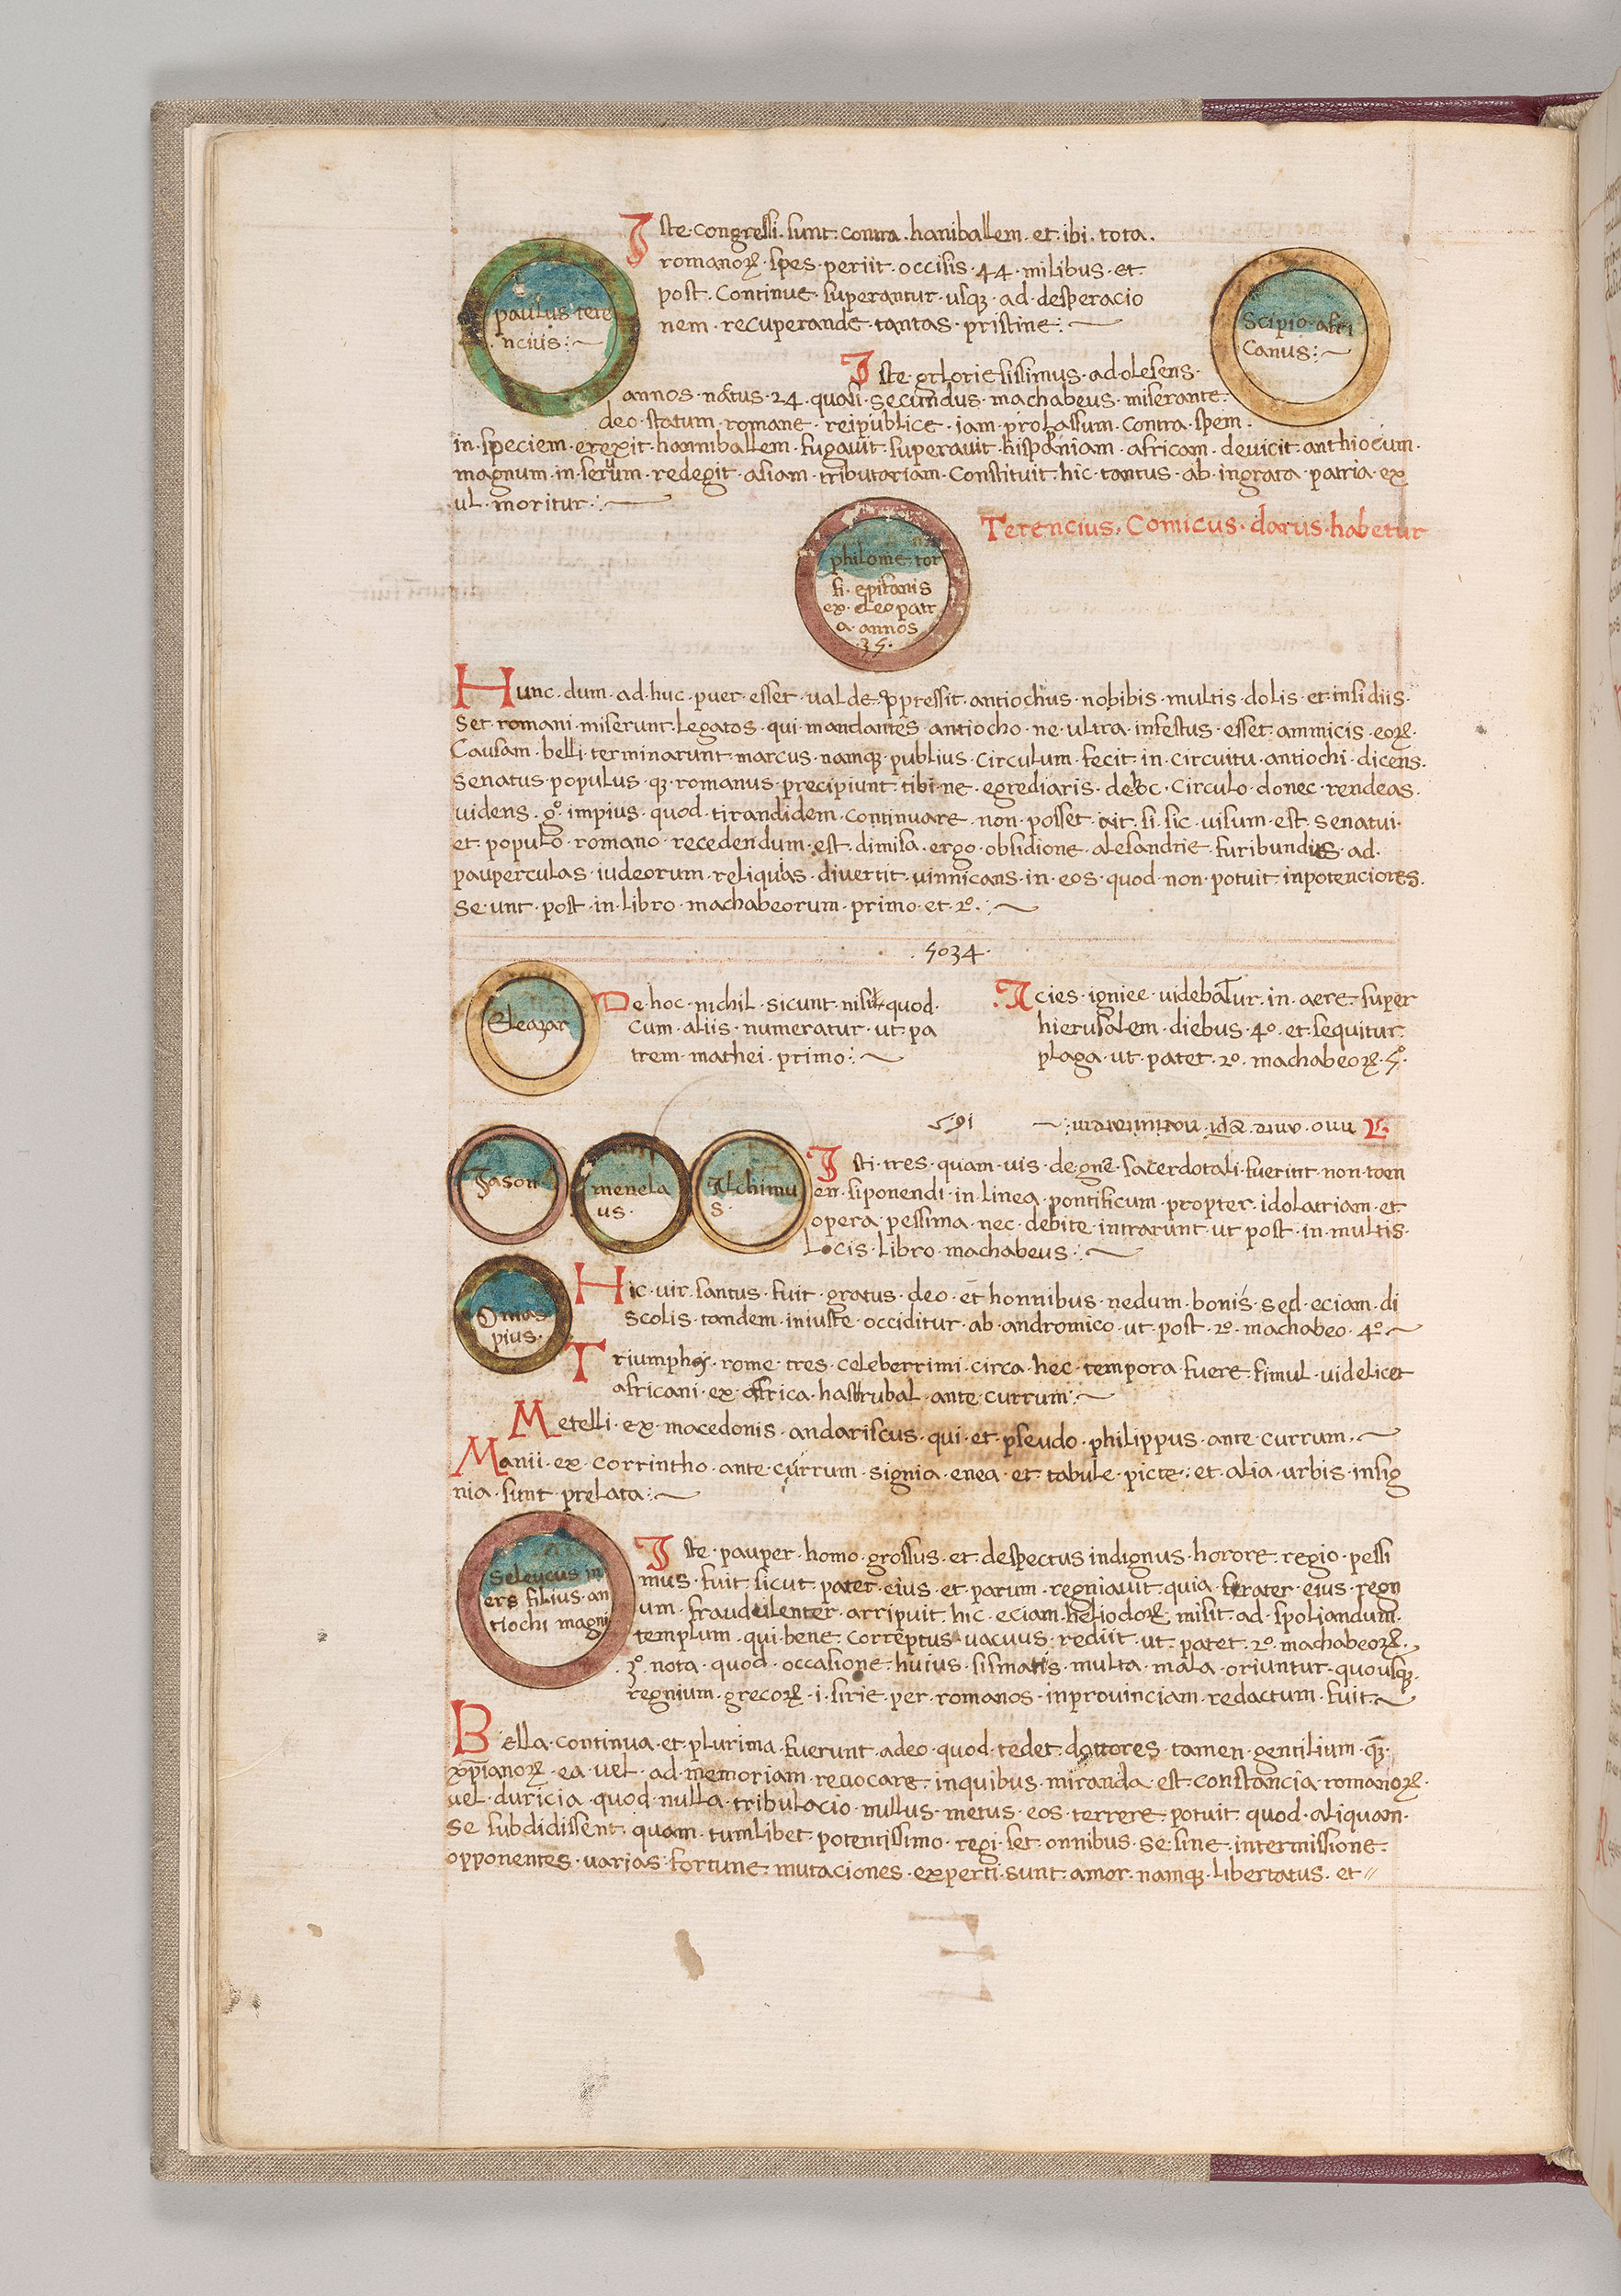 paulus tere
ncius:~
Iste congressi · sunt · contra · haniballem · et · ibi · tota ·
romanoꝝ · spes · periit · occisis · 44 · milibus · et ·
post · Continue · superantur · usqꝫ · ad · desperacio
nem · recuperande · tantas · pristine:~
Scipio · afri
Canus:~
Iste · grloriesissimus · ad · olesens ·
annos · natus · 24 · quasi · secundus · machabeus · miserante ·
deo · statum · romane · reipublice · iam · prolassum · contra · spem ·
in · speciem · erexit · hanniballem · fugauit · superauit · hispaniam · africam · deuicit · anthiocum ·
magnum · in · seruum · redegit · asiam · tributariam · Constituit · hic · tantus · ab · ingrata · patria · ex
ul · moritur:~
Terencius · Comicus · clarus · habetur
philome · tor
fi · epifanis
ex · cleopatr
a · annos
· 35 ·
Hunc · dum · ad · huc · puer · esset · ualde · oppressit · antiochus · nobibis · multis · dolis · et · insidiis ·
Set · romani · miserunt · legatos · qui · mandantes · antiocho · ne · ultra · infestus · esset · ammicis · eoꝝ ·
Causam · belli · terminarunt · marcus · namqꝫ · publius · circulum · fecit · in · circuitu · antiochi · dicens ·
Senatus · populus · qꝫ · romanus · precipiunt · tibi · ne · egrediaris · de hoc · circulo · donec · rendeas ·
uidens · gͦ · impius · quod · tirandidem · continuare · non · posset · ait · si · sic · uisum · est · senatui ·
et · populo · romano · recedendum · est · dimisa · ergo · obsidione · alesandrie · furibundus · ad ·
pauperculas · iudeorum · reliquias · diuertit · uinnicans · in · eos · quod · non · potuit · inpotenciores ·
Se · unt · post · in · libro · machabeorum · primo · et · 2º ·:~
· 5034 ·
Eleazar
De · hoc · nichil · sicunt · nisi · quod ·
cum · aliis · numeratur · ut · pa
trem · mathei · primo:~
Acies · igniee · uidebatur · in · aere · super
hierusalem · diebus · 40 · et · sequitur ·
plaga · ut · patet · 2º · machabeoꝝ · 5º ·
Anno · ante · xp̄i · natiuitatem:~
591
Jason
menela
us ·
Alchimu
s ·
Isti · tres · quam · uis · de · gn̄e · sacerdotali · fuerint · non · tam
en · siponendi · in · linea · pontificum · propter · idolatriam · et
opera · pessima · nec · debite · intrarunt · ut · post · in · multis ·
Locis · libro · machabeus:~
Onias
pius ·
Hic · uir · santus · fuit · gratus · deo · et honnibus · nedum · bonis · sed · eciam · di
Scolis · tandem · iniuste · occiditur · ab · andromico · ut · post · 2º · machabeo · 4º ~
Triumphi · rome · tres · celeberrimi · circa · hec · tempora · fuere · simul · uidelicet
africani · ex · affrica · hastrubal · ante · currum:~
Metelli · ex · macedonis · andariscus · qui · et · pseudo · philippus · ante · currum · ~
Manii · ex · corrintho · ante · currum · signia · enea · et · tabule · picte · et · alia · urbis · insig
nia · sunt · prelata:~
Seleucus in
ers filius · an
tiochi magni
Iste · pauper · homo · grossus · et · despectus indignus · horore · regio · pessi
mus · fuit · sicut · pater · eius · et · parum · regniauit · quia · frater · eius · regn
um · fraudulenter · arripuit · hic · eciam · heliodoꝝ · misit · ad · spoliandum ·
templum · qui · bene · correptus · uacuus · rediit · ut · patet · 2º · machabeoꝝ ·
· 3º · nota · quod · occasione · huius · sismatis · multa · mala · oriuntur · quousqꝫ ·
regnium · grecoꝝ · i · sirie · per · romanos · inprouinciam · redactum · fuit ~
Bella · continua · et · plurima · fuerunt · adeo · quod · tedet · dottores · tamen · gentilium · qꝫ ·
xp̄ianoꝝ · ea · uel · ad · memoriam · reuocare · inquibus · miranda · est · constancia · romanoꝝ ·
uel · duricia · quod · nulla · tribulacio · nullus · metus · eos · terrere · potuit · quod · aliquan ·
Se · subdidissent · quam · tumlibet · potentissimo · regi · set · onnibus · se · sine · intermissione ·
opponentes · uarias · fortune · mutaciones · experti · sunt · amor · namqꝫ · libertatus · et //